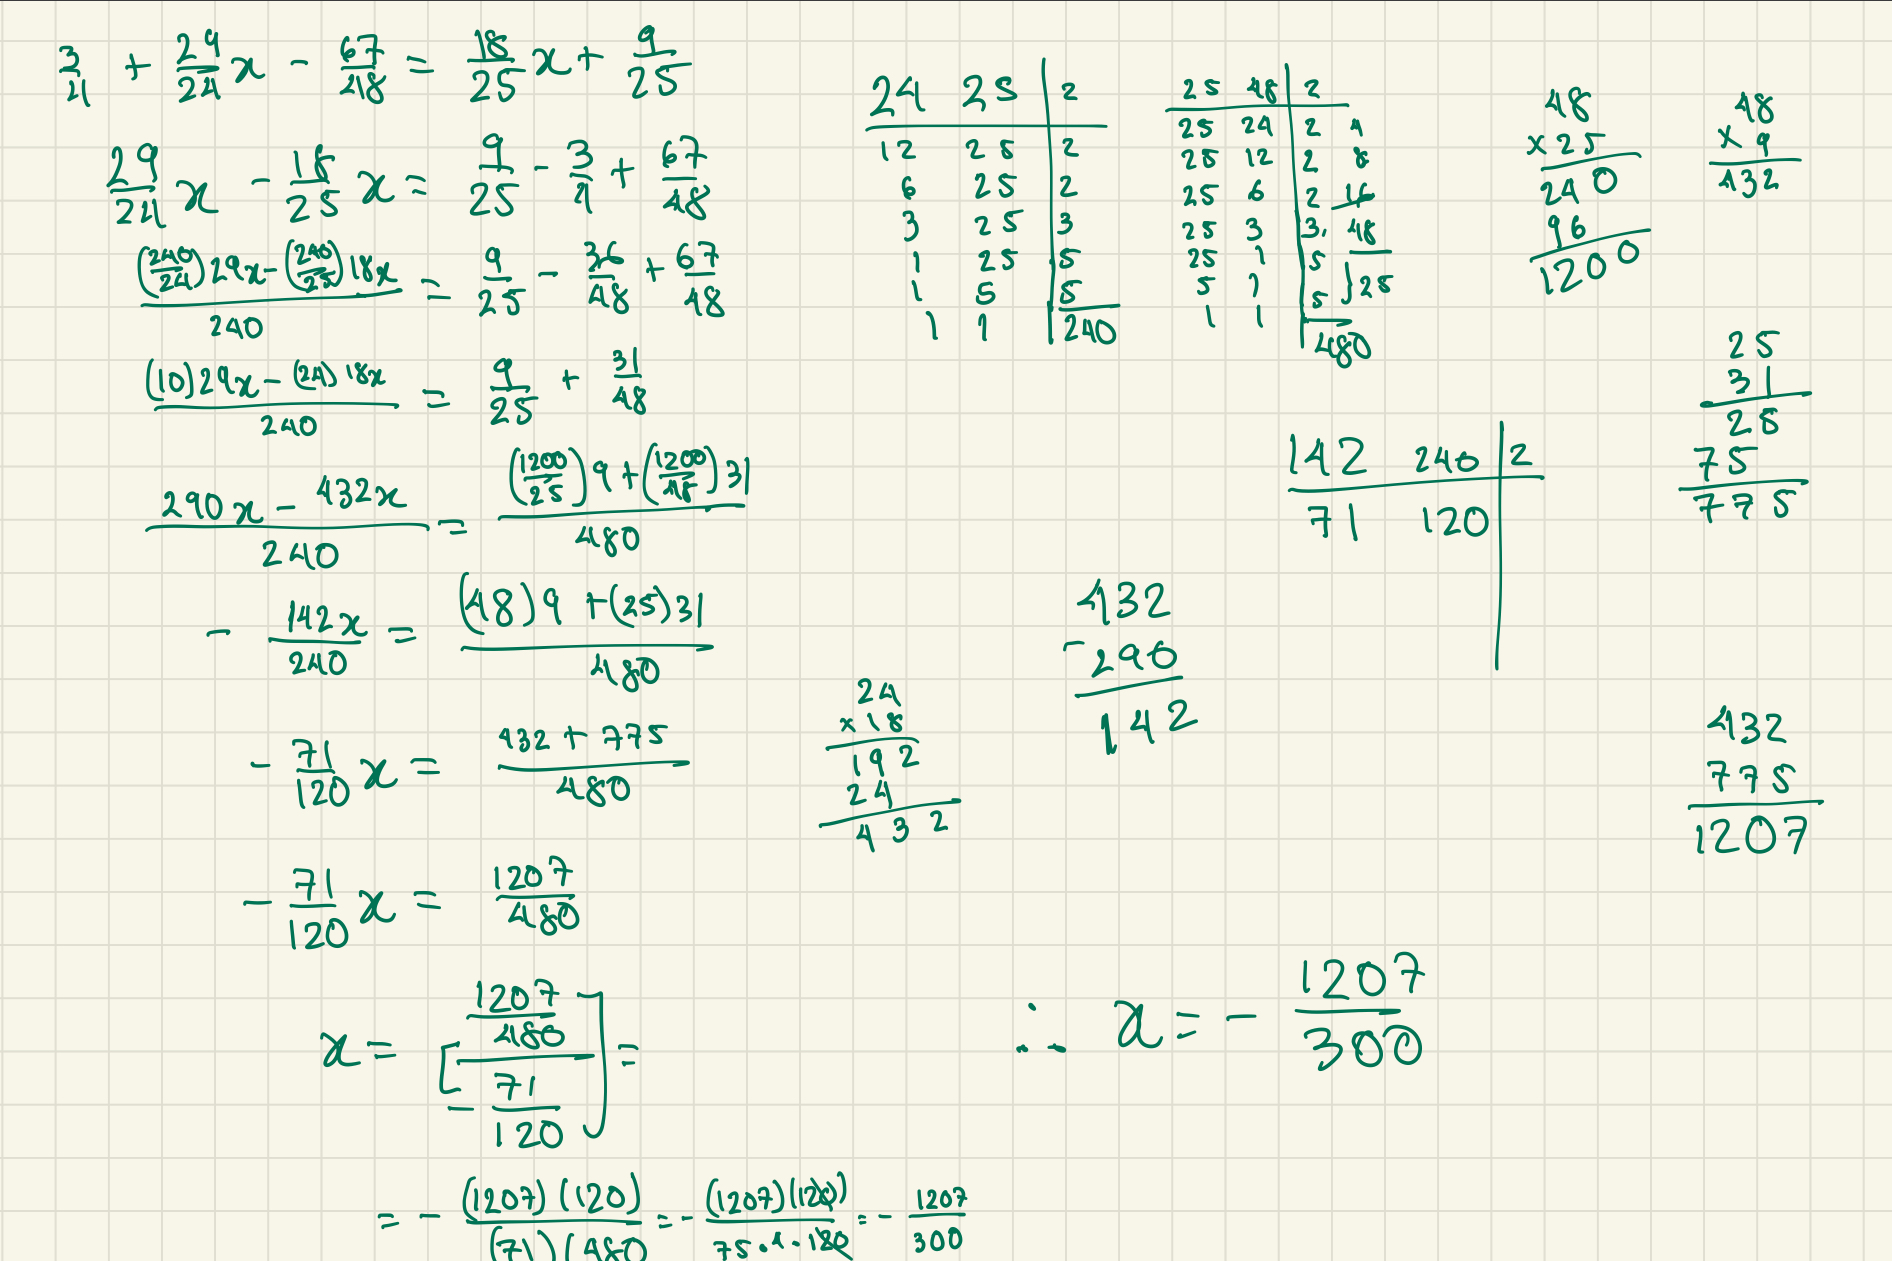 3/4 + 29/24 x - 67/48 = 18/25 x + 9/25
29/24 x - 18/25 x = 9/25 - 3/4 + 67/48
((240/24)29x - (240/25)18x)/240 = 9/25 - 36/48 + 67/48
((10)29x - (24)18x)/240 = 9/25 + 31/48
(290x - 432x)/240 = ((1200/25)9 + (1200/48)31)/480
- 142x/240 = ((48)9 + (25)31)/480
- 71/120 x = (432 + 775)/480
- 71/120 x = 1207/480
x = [(1207/480)/(- 71/120)] =
= - (1207)(120)/(71)(480 = - (1207)(120)/75·4·120 = - 1207/300
24 25 | 2
12 25 | 2
6 25 | 2
3 25 | 3
1 25 | 5
1 5 | 5
1 1 | 240
25 48 | 2
25 24 | 2 4
25 12 | 2 8
25 6 | 2 16
25 3 | 3 48
25 1 | 5
5 1 | 5 25
1 1 | 480
48
×25
240
96
1200
48
×9
432
25
31
25
75
775
142 240 | 2
71 120
432
-290
142
24
×18
192
24
432
432
775
1207
∴ x = - 1207/300